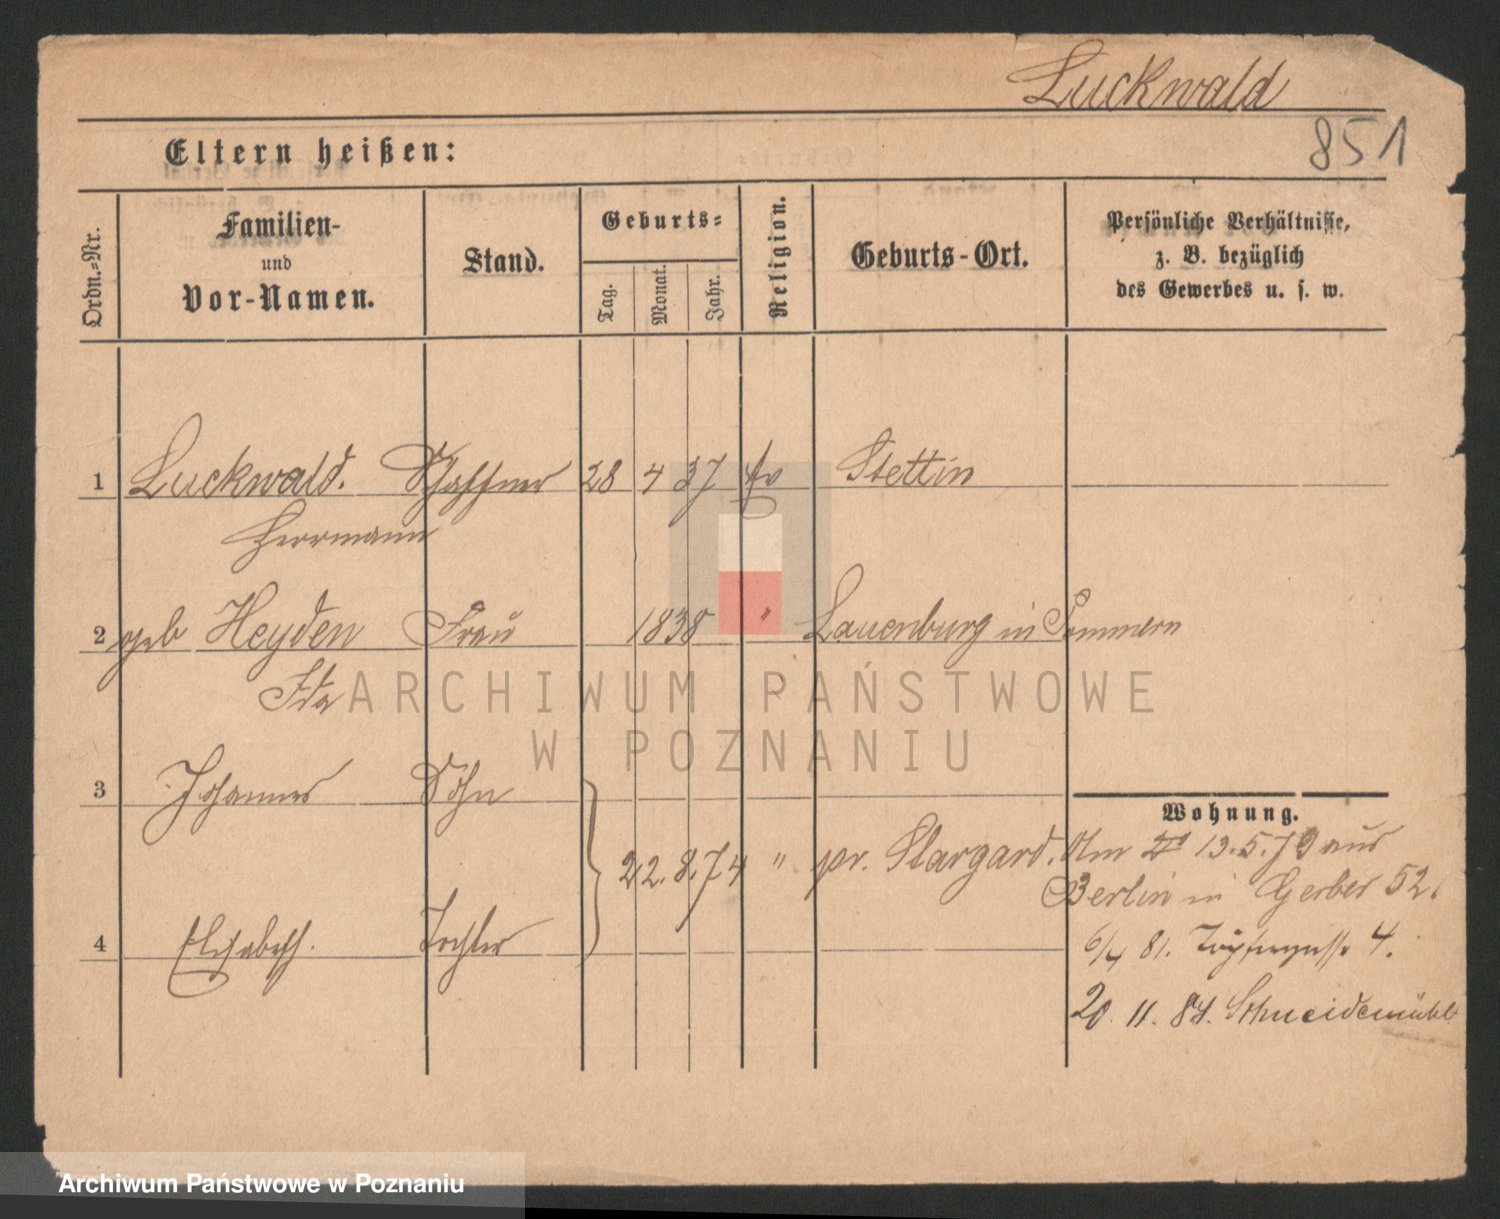 Luckwald
851
Eltern heißen:
Ordn.-Nr.
Familien-
und
Vor-Namen.
Stand.
Geburts-
Tag.
Monat.
Jahr.
Religion.
Geburts-Ort.
Persönliche Verhältnisse,
z. B. bezüglich
des Gewerbes u. s. w.
1 Luckwald. Schaffner 28 4 37 ev Stettin
Herrmann
2 geb Heyden Frau 1838 " Lauenburg in Pommern
Ida
ARCHIWUM PAŃSTWOWE
W POZNANIU
3 Johannes Sohn
Wohnung.
22.8.74 " pr. Stargard.
Am 13.5.79 aus
Berlin in Gerber 52.
4 Elisabeth. Tochter
6/4 81. Töpfergasse 4.
20. 11. 84. Schneidemühl
Archiwum Państwowe w Poznaniu